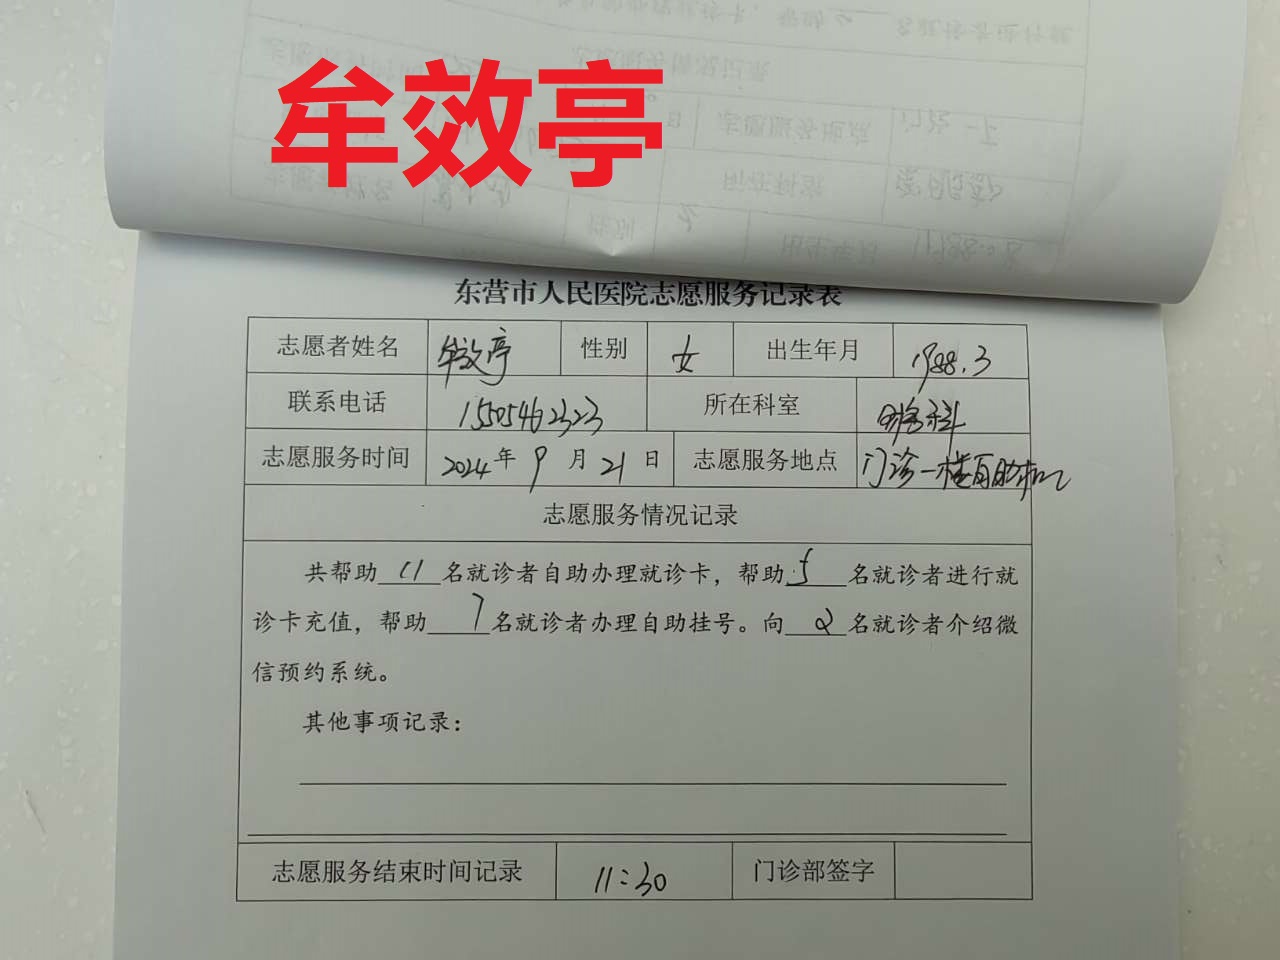 牟效亭
东营市人民医院志愿服务记录表
志愿者姓名 牟效亭 性别 女 出生年月 1988.3
联系电话 15505462323 所在科室 科
志愿服务时间 2024年9月21日 志愿服务地点 门诊一楼自助机
志愿服务情况记录
共帮助 11 名就诊者自助办理就诊卡，帮助 5 名就诊者进行就
诊卡充值，帮助 7 名就诊者办理自助挂号。向 2 名就诊者介绍微
信预约系统。
其他事项记录：
志愿服务结束时间记录 11:30 门诊部签字